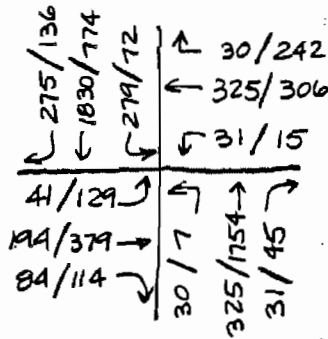 275/136
1830/774
279/72
30/242
325/306
31/15
41/129
194/379
84/114
30/7
325/1754
31/45